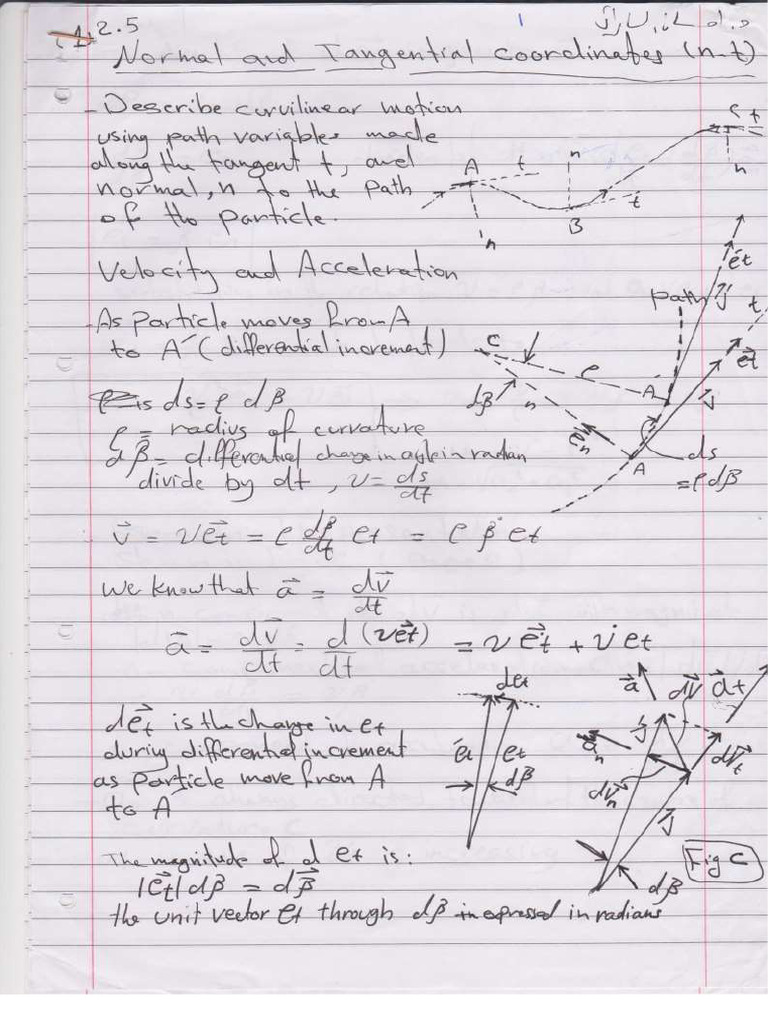 2.5
1
Normal and Tangential coordinates (n-t)
- Describe curvilinear motion
using path variables made
along the tangent t, and
normal, n to the path
of the particle.
A t n n B t C t n
Velocity and Acceleration
- As particle moves from A
to A' (differential increment)
is ds = ρ dβ
ρ = radius of curvature
dβ = differential change in angle in radian
divide by dt, v = ds/dt
C ρ dβ n e⃗n A' A path v⃗' é t v⃗ e⃗t t ds
= ρdβ
v⃗ = v e⃗t = ρ dβ/dt et = ρ β̇ et
we know that a⃗ = dv⃗/dt
a⃗ = dv⃗/dt = d/dt (v e⃗t) = v e⃗̇t + v̇ et
de⃗t is the change in et
during differential increment
as particle move from A
to A'
det e't et dβ
a⃗ dv⃗ a⃗t v⃗' a⃗n dv⃗t dv⃗n v⃗ dβ
Fig C
The magnitude of d et is:
|e⃗t| dβ = dβ⃗
the unit vector et through dβ in expressed in radians